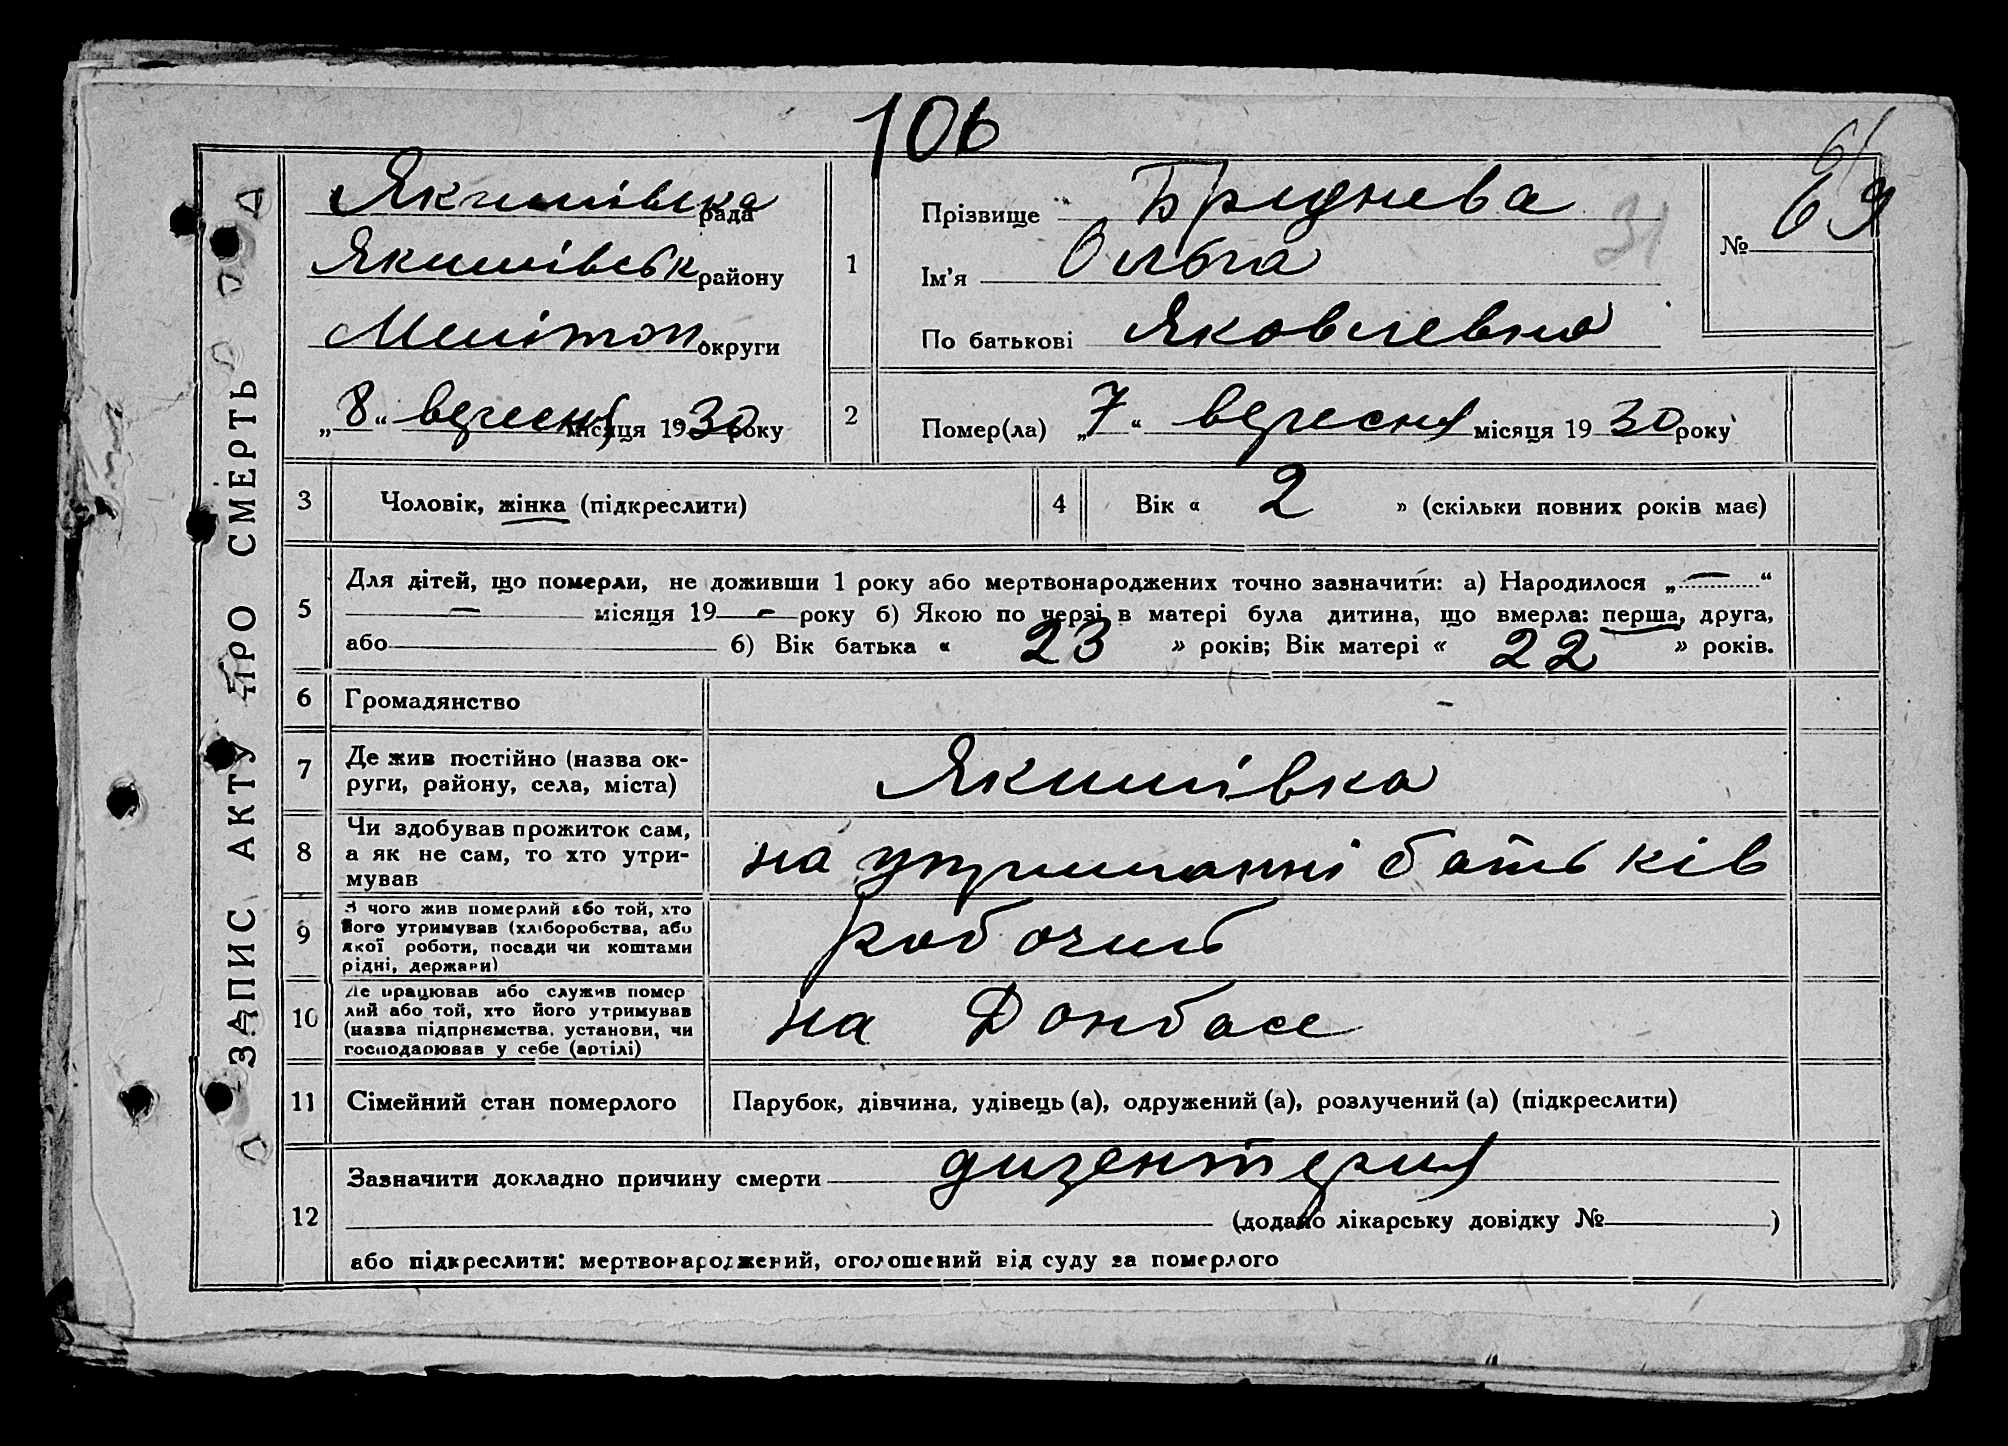 106
61
69
31
ЗАПИС АКТУ ПРО СМЕРТЬ
Якимівська рада
Якимівськ району
Меліпоп округи
„8“ вересня місяця 1930 року
1
Прізвище Бриднева
Ім’я Ольга
По батькові Яковлевна
№
2
Помер(ла) „7“ вересня місяця 1930 року
3 Чоловік, жінка (підкреслити)
4 Вік « 2 » (скільки повних років має)
5 Для дітей, що померли, не доживши 1 року або мертвонароджених точно зазначити: а) Народилося „—“
— місяця 19 — року б) Якою по черзі в матері була дитина, що вмерла: перша, друга,
або б) Вік батька « 23 » років; Вік матері « 22 » років.
6 Громадянство -
7 Де жив постійно (назва ок-
руги, району, села, міста)
Якимівка
8 Чи здобував прожиток сам,
а як не сам, то хто утри-
мував
на утриманні батьків
9 З чого жив померлий або той, хто
його утримував (хліборобства, або
якої роботи, посади чи коштами
рідні, держави)
робочий
10 Де працював або служив помер
лий або той, хто його утримував
(назва підприємства, установи, чи
господарював у себе (артілі)
на Донбасе
11 Сімейний стан померлого
Парубок, дівчина, удівець (а), одружений (а), розлучений (а) (підкреслити)
12 Зазначити докладно причину смерти дизентерия
(додано лікарську довідку № )
або підкреслити: мертвонароджений, оголошений від суду за померлого